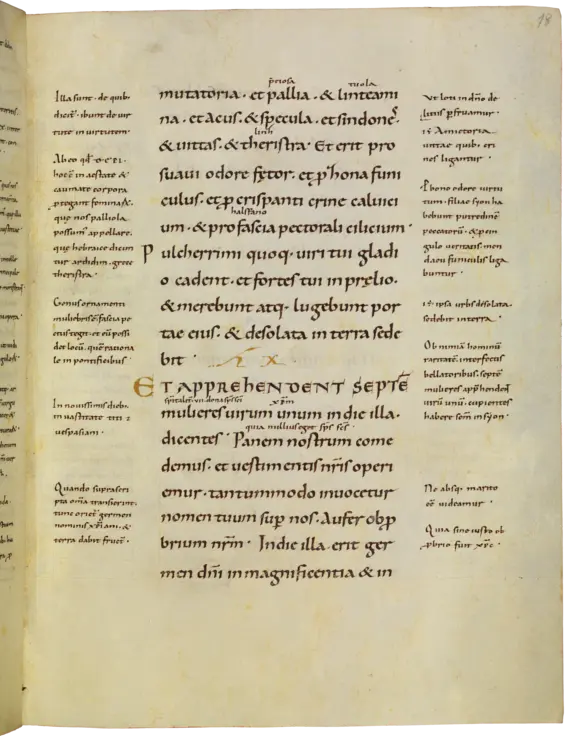 18
Illa sunt · de quib·
dicit · ibunt de uir
tute in uirtutem·
Ab eo qd
hoc in aestate &
caumate corpora
ptegant femina&·
que nos palliola
possum appellare·
que hebraice dicun
tur ardidim · grece
theristra ·
Genus ornamenti
muliebris ē· fascia pe
ctus tegit · et eū possi
det locū · quē rationa
le in pontificibus ·
In nouissimis dieb·
in uastitate titi &
uespasiani ·
Quando suprascri
pta om̄a transierint·
tunc oriet germen
nominis xp̄iani · &
terra dabit fructū ·
mutatoria · et pallia · & linteami
na · et acus · & specula · et sindones·
linh
& uittas · & theristra · Et erit pro
suaui odore fetor · et p zona funi
culus · et p crispanti crine caluici
um · & pro fascia pectorali cilicium ·
Pulcherrimi quoq· uiri tui gladi
o cadent · et fortes tui in prelio ·
& merebunt atq· lugebunt por
tae eius · & desolata in terra sede
bit ·
ET APPREHENDENT SEPTĒ
xp̄m
mulieres uirum unum in die illa ·
quia nullius eget sp̄s sc̄s
dicentes · Panem nostrum come
demus · et uestimentis nr̄is operi
emur · tantummodo inuocetur
nomen tuum sup nos · Aufer obp
brium nr̄m · In die illa · erit ger
men dn̄i in magnificentia & in
Vt illi in dn̄o de
litiis pfruamur ·
uitae quib· cri
nes ligantur ·
P bono odore uirtu
tum · filiae syon ha
bebunt putredinē
peccatorū · & p cin
gulo ueritatis men
dacii funiculis liga
buntur ·
ipsa urbs desolata
sedebit in terra ·
Ob nimiā hominū
raritatē · interfectis
bellatoribus · septē
mulieres appr̄hendent
uirū unū · cupientes
habere sem̄ in syon ·
Ne absq· marito
eē uideamur ·
Quia sine iusto ob
pbrio fuit xp̄c ·